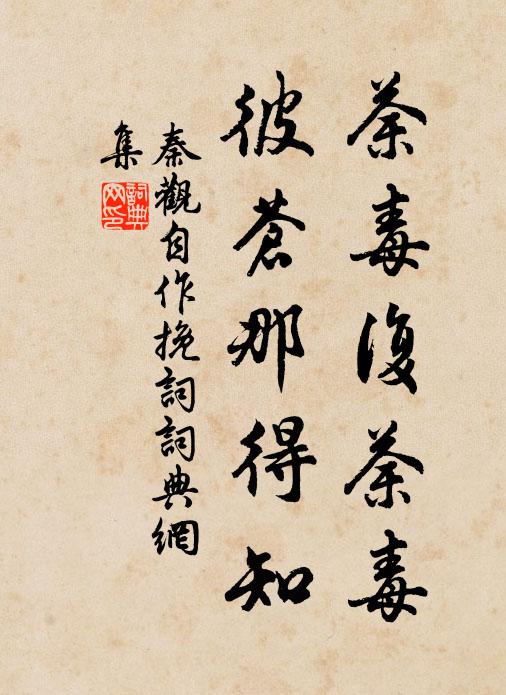 荼毒復荼毒
彼蒼那得知
秦觀自作挽詞詞典網
集
詞典
网印